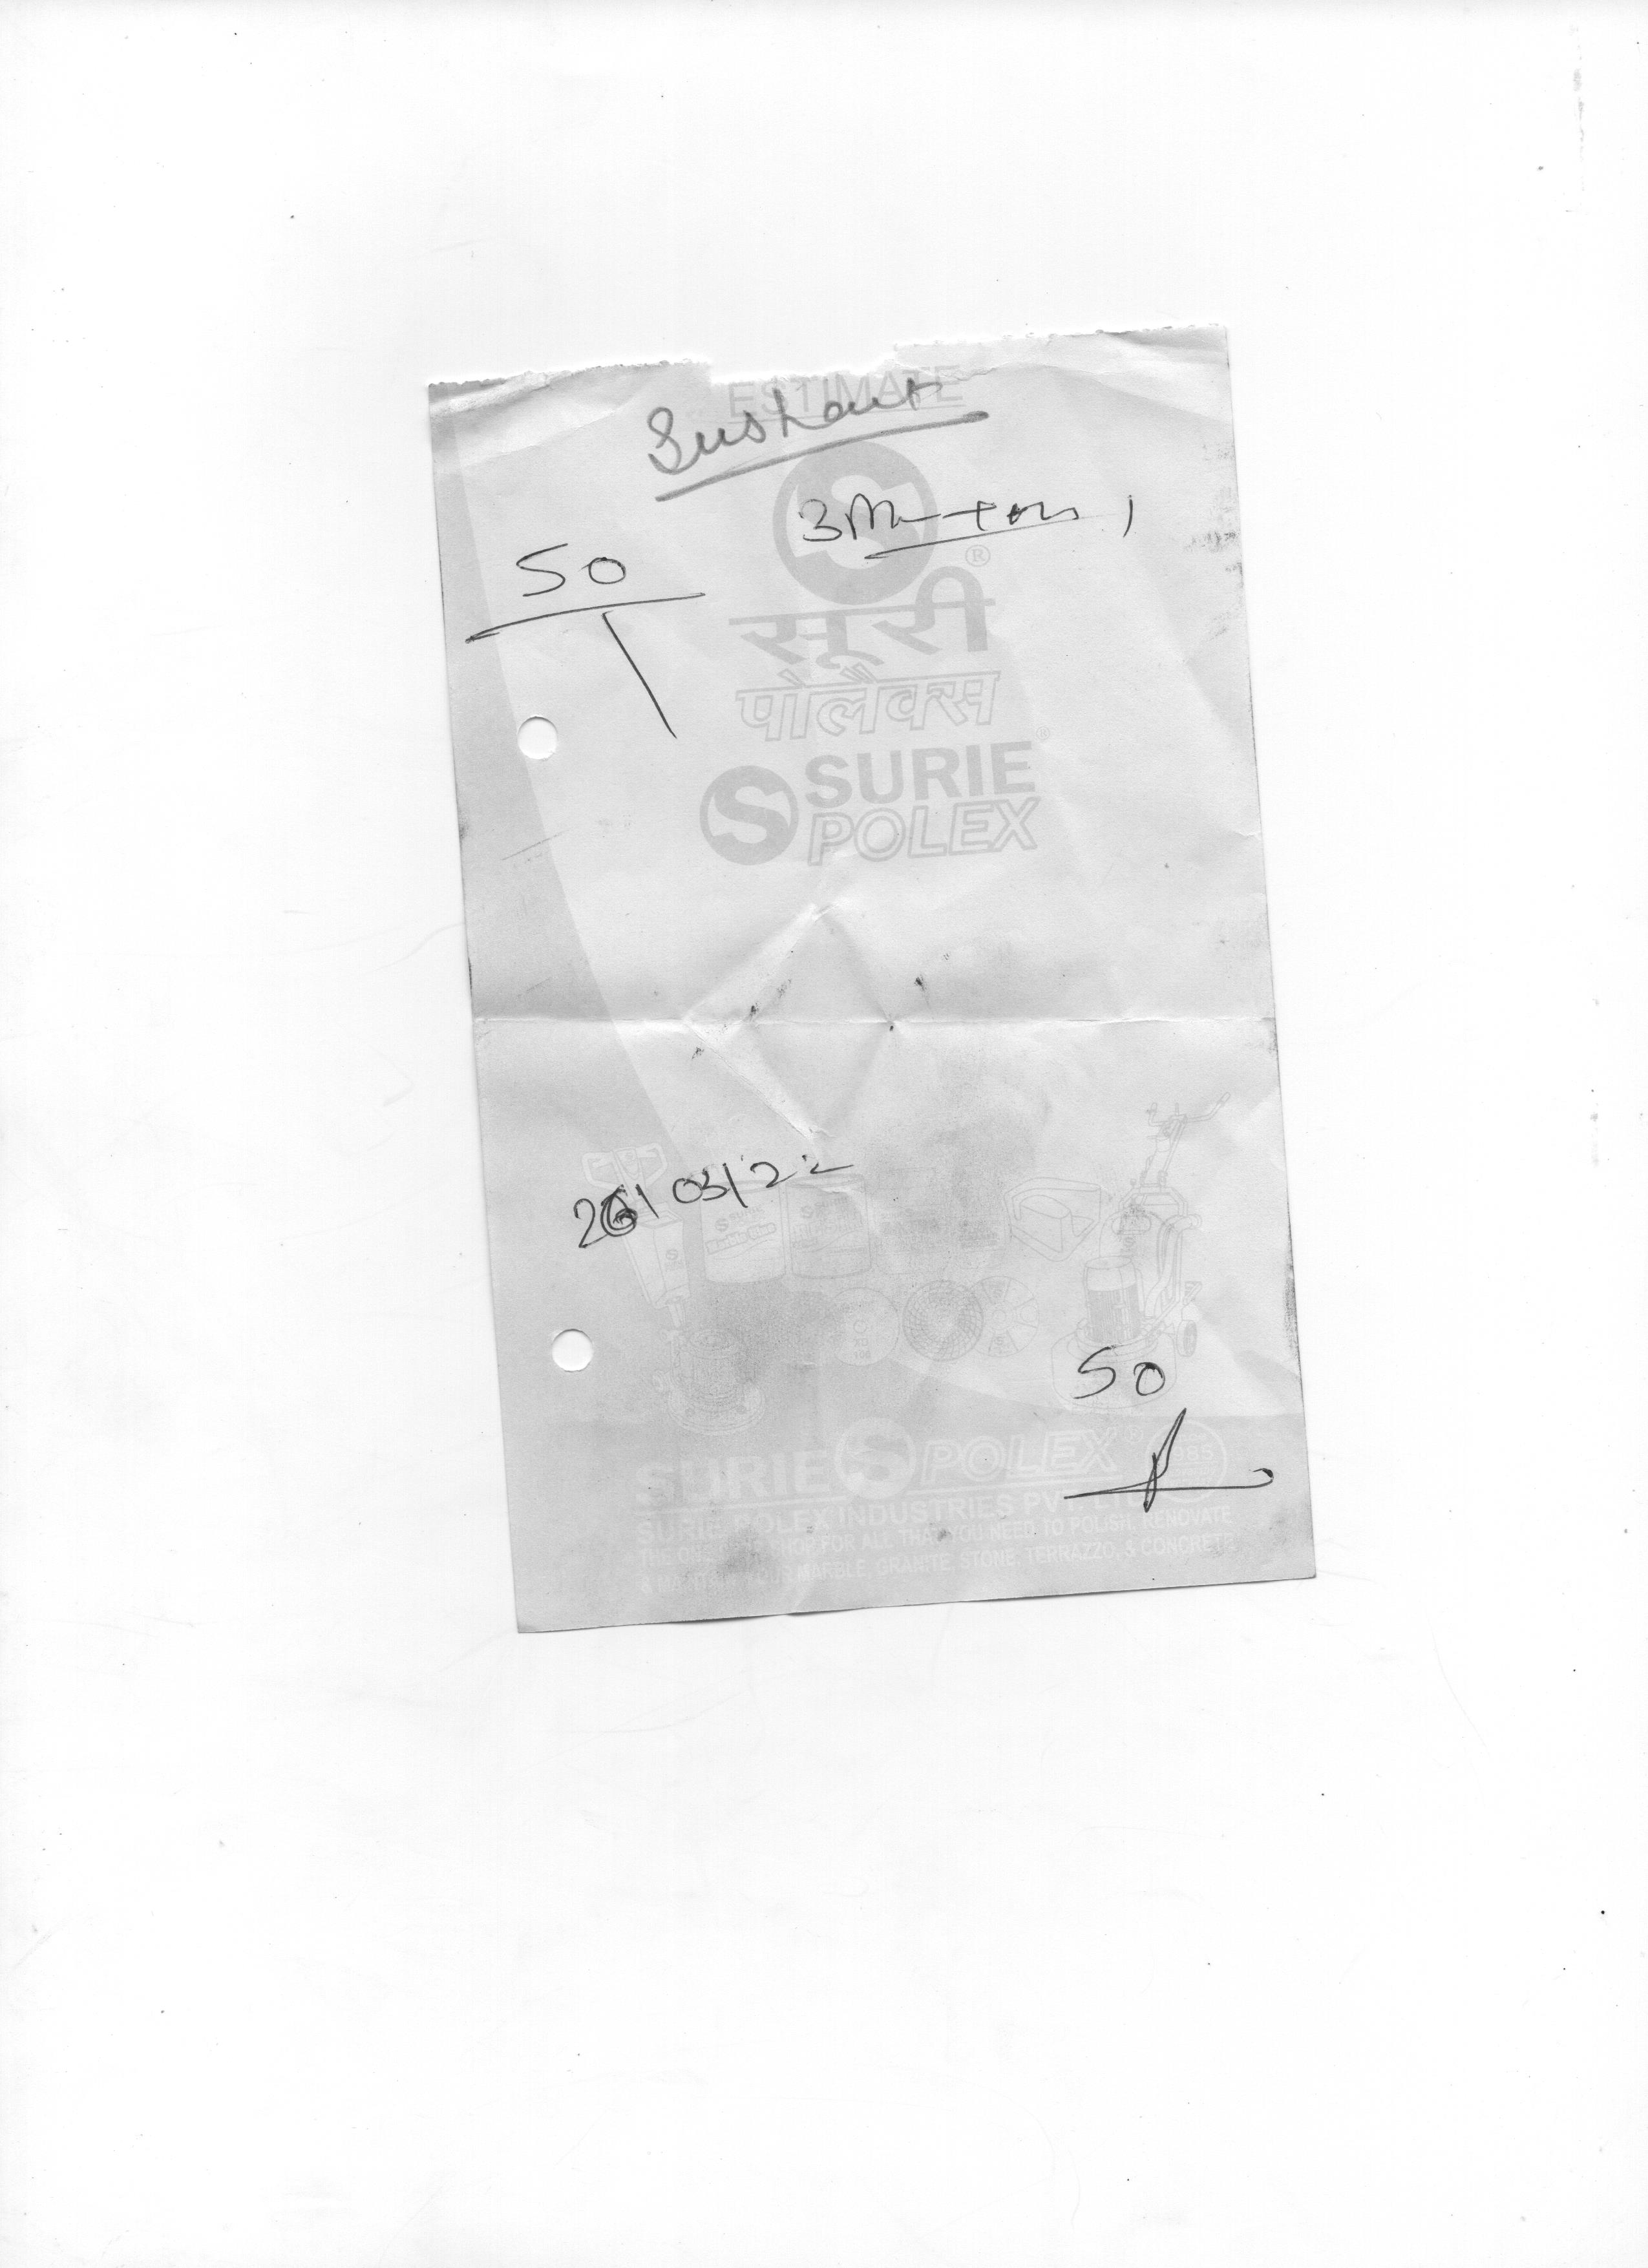 ESTIMATE
Sushant
50
सूरी
पोलैक्स
SURIE
POLEX
26/03/22
50
SURIE S POLEX
SURIE POLEX INDUSTRIES PVT. LTD.
THE ONE STOP SHOP FOR ALL THAT YOU NEED TO POLISH, RENOVATE
& MAINTAIN YOUR MARBLE, GRANITE, STONE, TERRAZZO, & CONCRETE